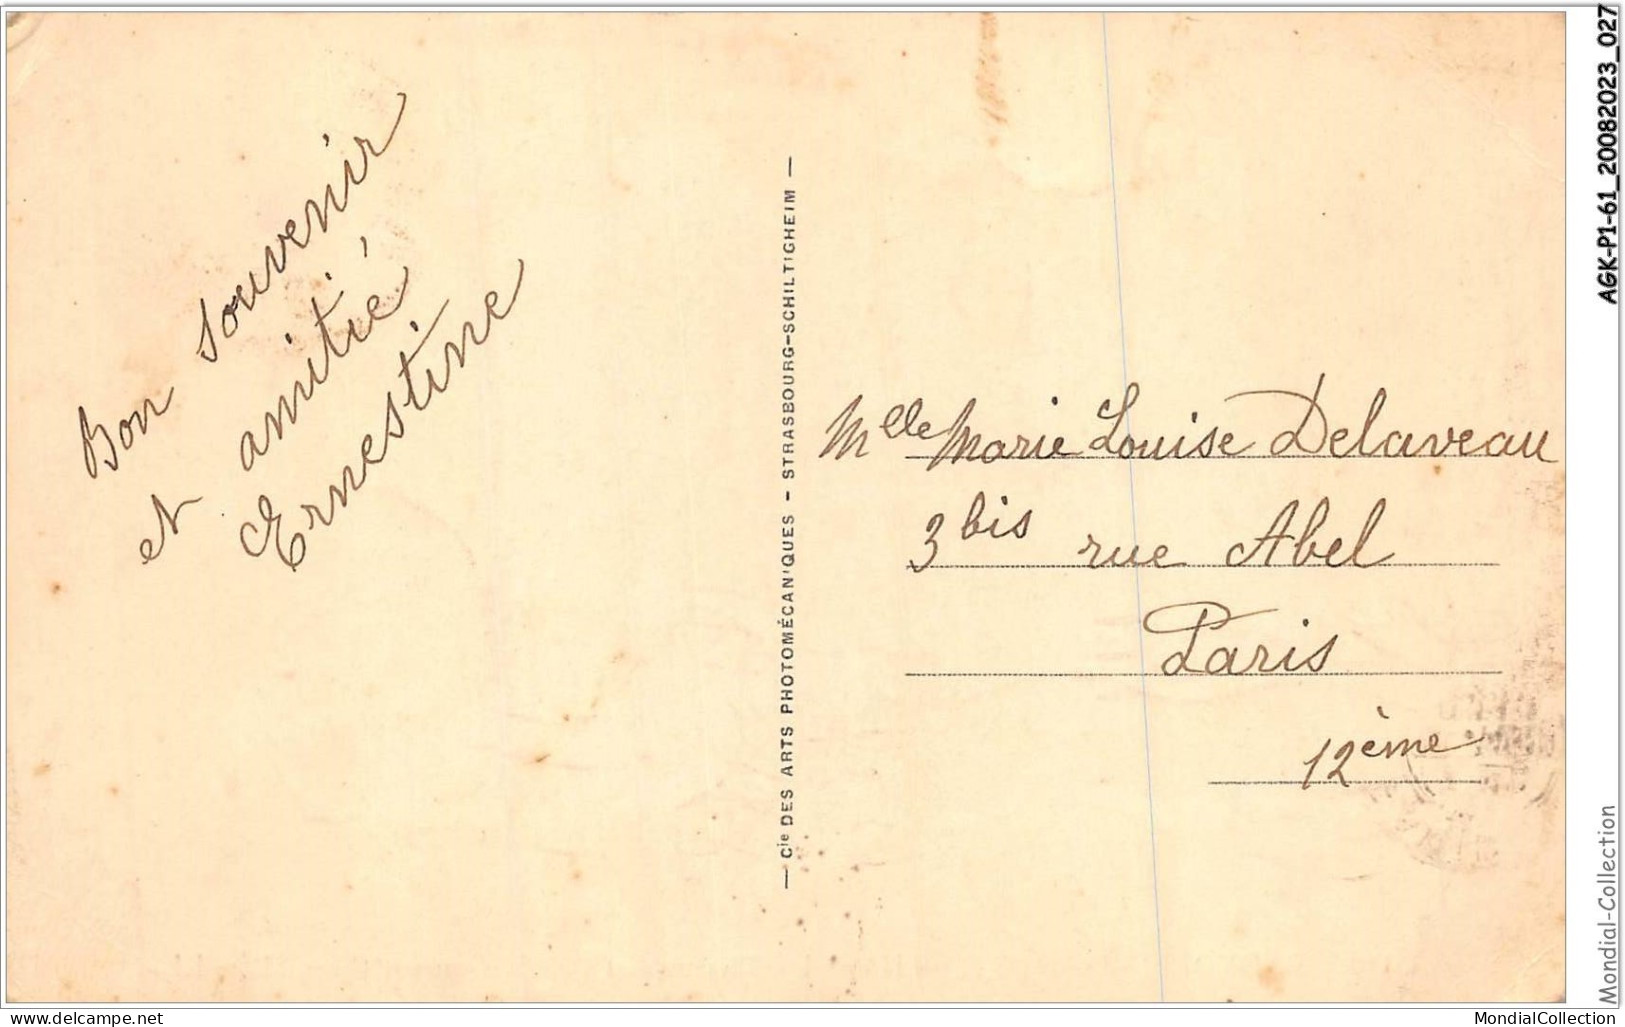 Bon souvenir
et amitié
Ernestine
— Cie DES ARTS PHOTOMÉCANIQUES - STRASBOURG-SCHILTIGHEIM —
Mlle Marie Louise Delaveau
3 bis rue Abel
Paris
12ème
AGK-P1-61_20082023_027
Mondial-Collection
www.delcampe.net
MondialCollection